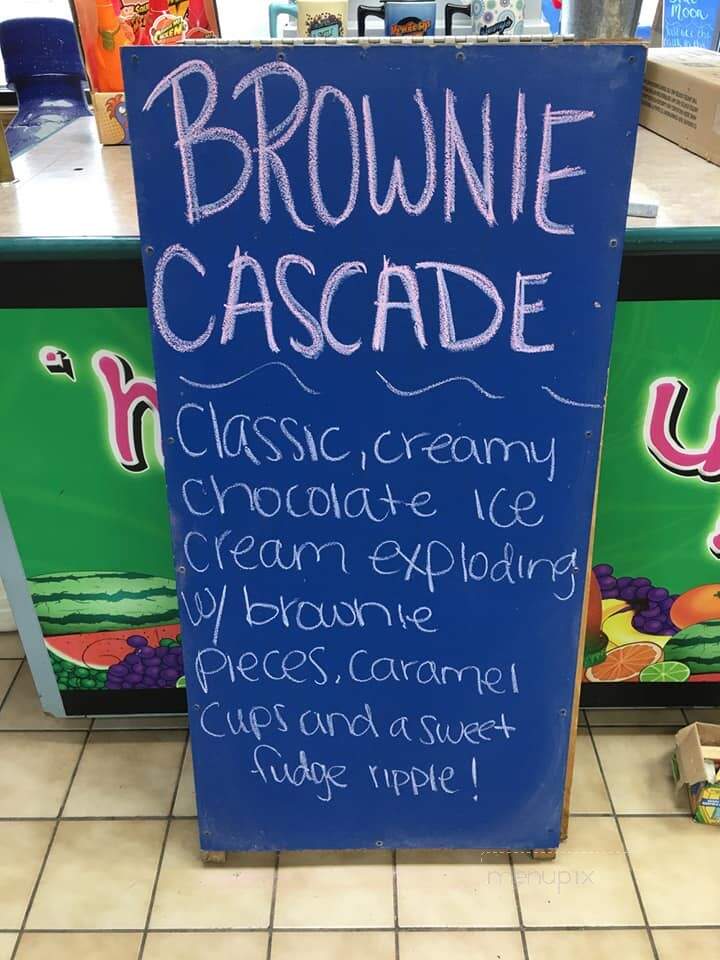 BROWNIE
CASCADE
Classic, creamy
chocolate ice
cream exploding
w/ brownie
pieces, caramel
cups and a sweet
fudge ripple!
Moon
menupix